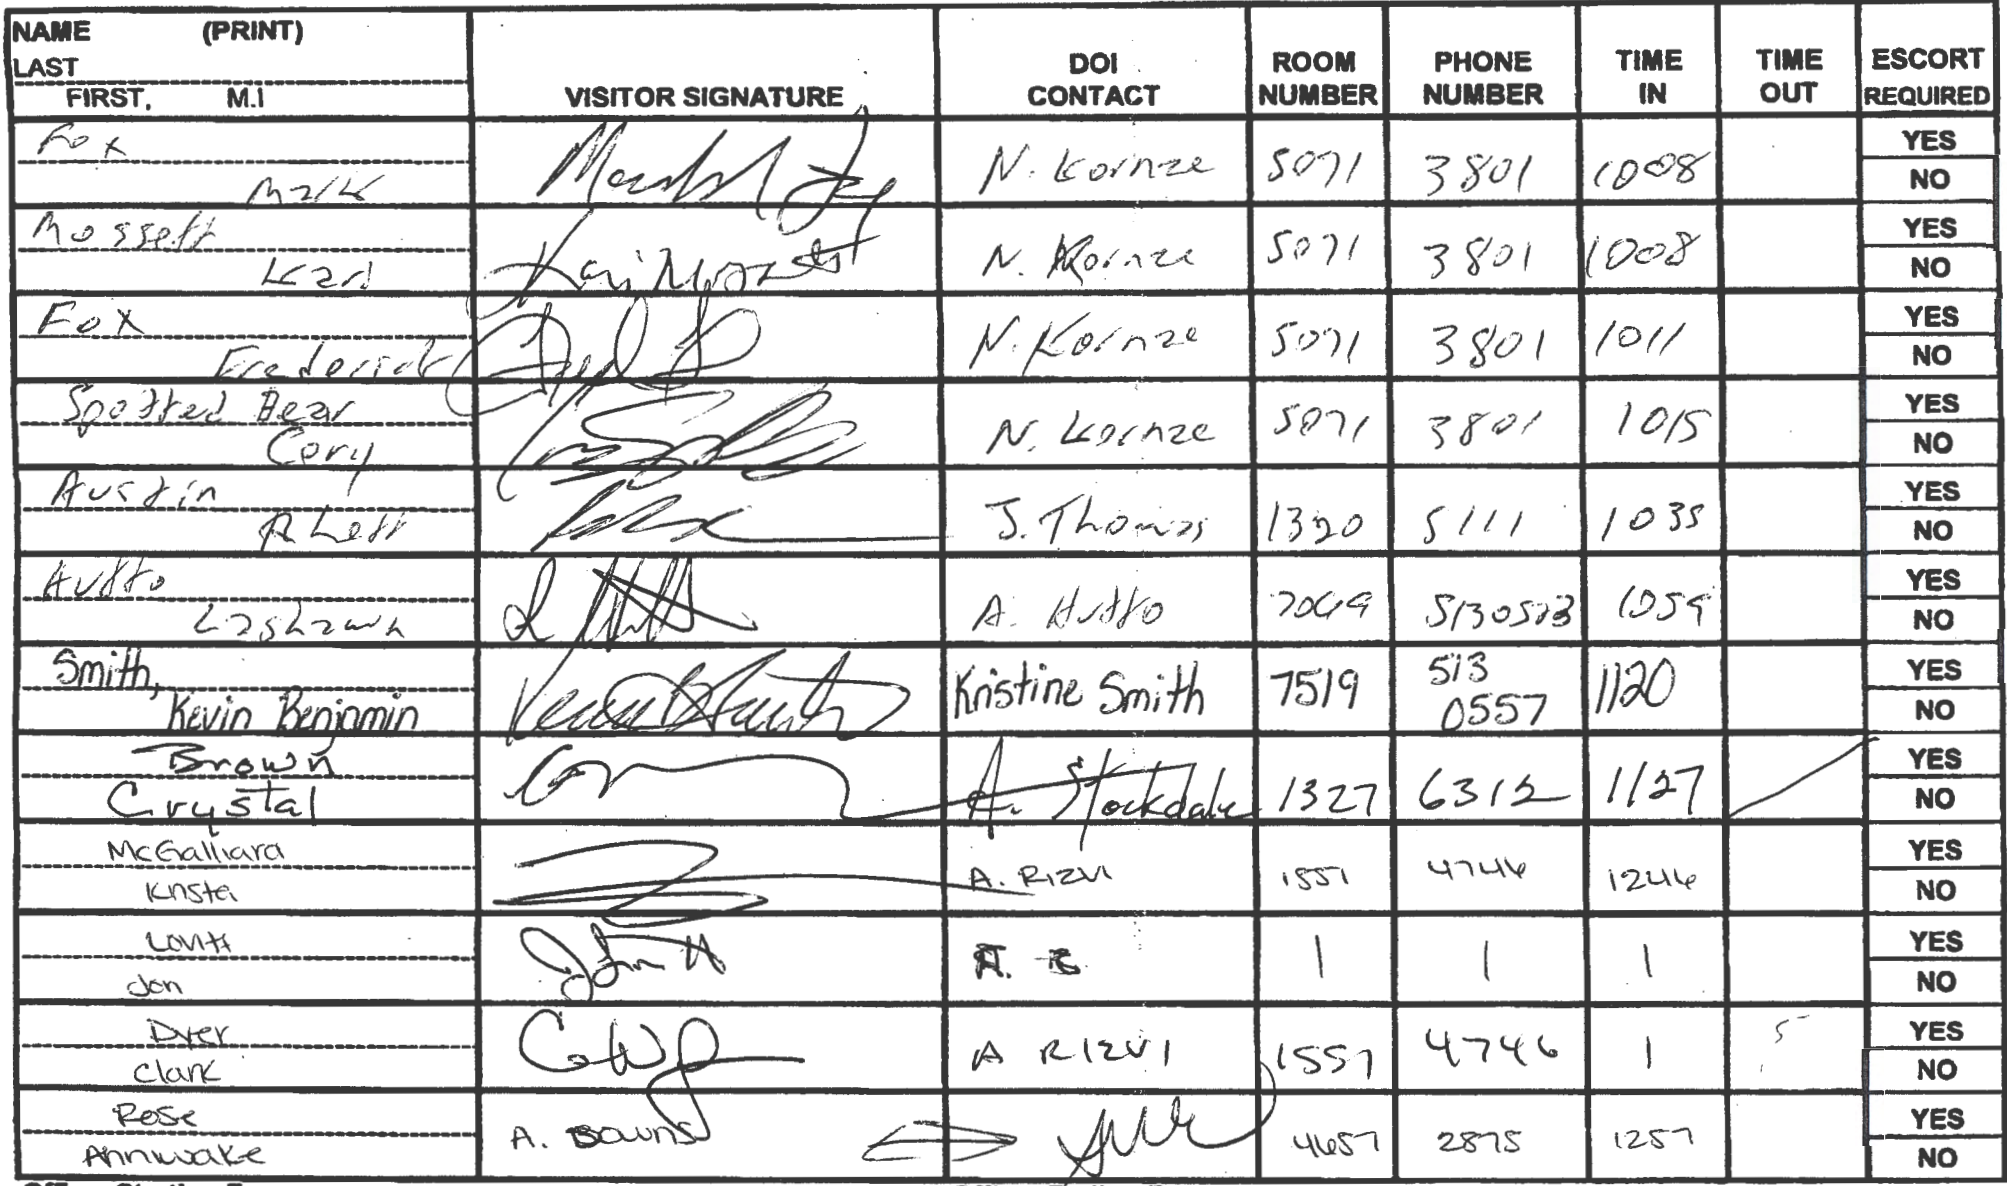 NAME (PRINT)
LAST
FIRST, M.I
VISITOR SIGNATURE
DOI CONTACT
ROOM NUMBER
PHONE NUMBER
TIME IN
TIME OUT
ESCORT REQUIRED
Fox
Mark
N. Kornze 5071 3801 1008 YES NO
Mossett
N. Kornze 5071 3801 1008 YES NO
Fox
Frederick
N. Kornze 5071 3801 1011 YES NO
Spotted Bear
Cory
N. Kornze 5071 3801 1015 YES NO
Austin
Rhett
J. Thomas 1320 5111 1035 YES NO
Lashawn
A. Hutto 7049 1059 YES NO
Smith,
Kevin Benjamin
Kristine Smith 7519 513 0557 1120 YES NO
Brown
Crystal
A. Stockdale 1327 6312 1127 YES NO
McGalliard
Krista
A. RIZVI 1557 4746 1246 YES NO
Lovitt
Jon
A. R | | | YES NO
Dyer
Clark
A RIZVI 1557 4746 | YES NO
Rose
Annwake
A. Bowns 4657 2875 1257 YES NO